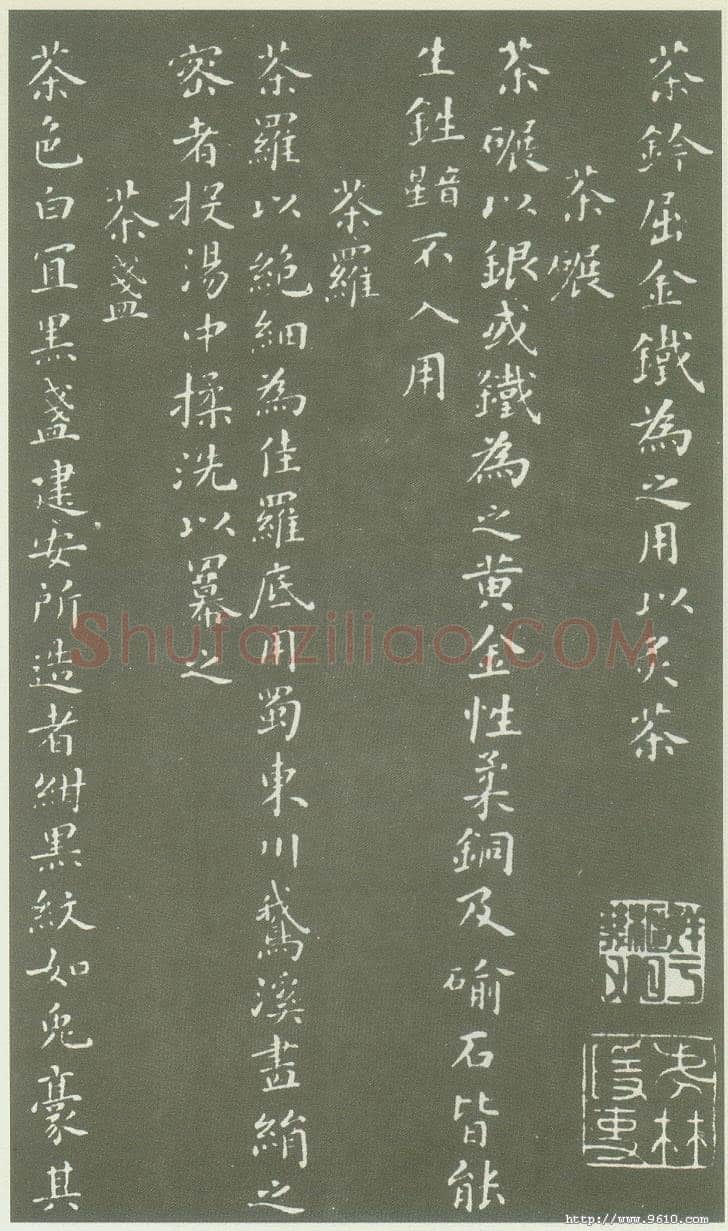 茶鈐屈金鐵為之用以炙茶
茶碾
茶碾以銀或鐵為之黃金性柔銅及礍石皆能
生鉎不入用
茶羅
茶羅以絕細為佳羅底用蜀東川鵞溪畫絹之
密者投湯中揉洗以羃之
茶盞
茶色白宜黑盞建安所造者紺黑紋如兔豪其
Shufaziliao.COM
http://www.9610.com